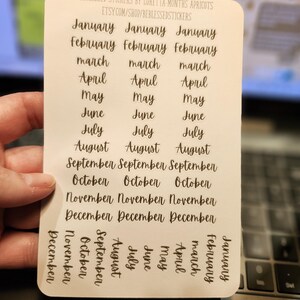 STICKERS BY LORETTA MONTHS
ETSY.COM/SHOP/
January January January
February February February
march march march
April April April
May May May
June June June
July July July
August August August
September September September
October October October
November November November
December December December
December November October September August July June May April march February January